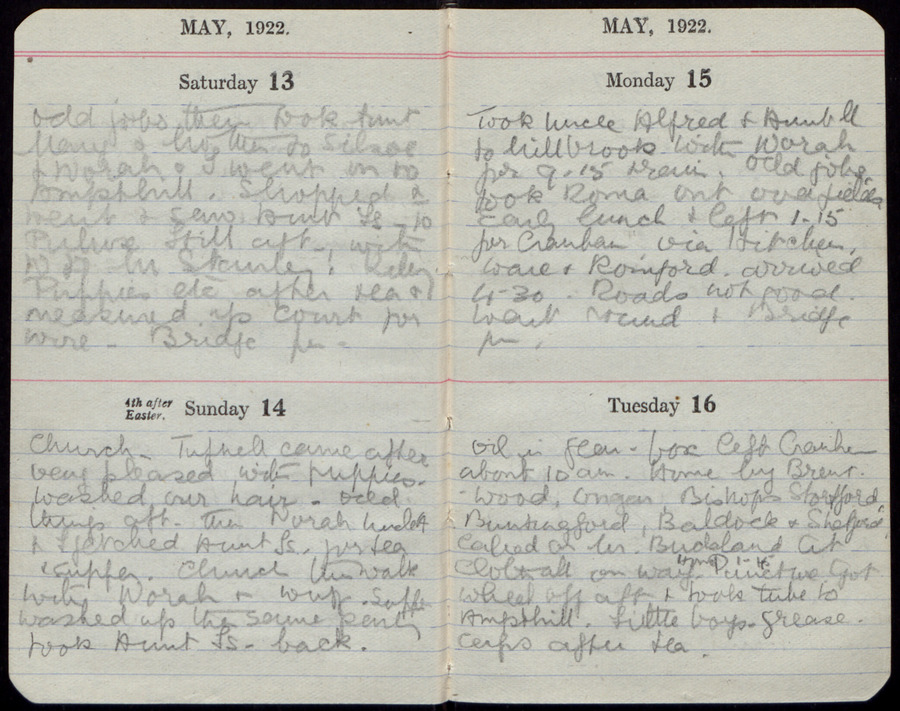 MAY, 1922.
Saturday 13
odd jobs then took Aunt
Mary & to Silsoe
& Norah & I went on to
Ampthill. Shopped &
went & saw Aunt Is - to
still aft - with
Stanley.
Puppies etc after tea &
measured up court for
wire - Bridge pm -
4th after Easter. Sunday 14
Church - Tufnell came after
very pleased with puppies.
washed our hair - odd
things aft - then Norah
& I fetched Aunt Is. for tea
& supper. Church then walk
with Norah &
washed up the same party
took Aunt Is - back.
MAY, 1922.
Monday 15
Took Uncle Alfred & Aunt
to Millbrook with Norah
for 9-15 train. Odd jobs
took Roma out over fields
Early lunch & left 1-15
for Cranham via Hitchin,
Ware & Romford. arrived
4-30 - Roads not good.
Went round & Bridge
pm.
Tuesday 16
Oil in gear-box left Cranham
about 10 am. Home by Brent-
wood, Ongar, Bishops Stortford
Buntingford, Baldock & Shefford
Called on Mr. Buckland at
on way. Home 1-15 Puncture Got
wheel off aft & took tube to
Ampthill. Little boys - grease-
cups after tea.